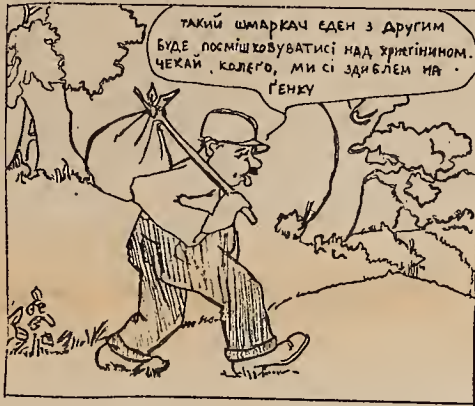 ТАКИЙ ШМАРКАЧ ЄДЕН З ДРУГИМ
БУДЕ ПОСМІШКОВУВАТИСІ НАД ХРИГІНИНОМ.
ЧЕКАЙ, КОЛЕҐО, МИ СІ ЗДИБЛЕМ НА
ҐЕНКУ